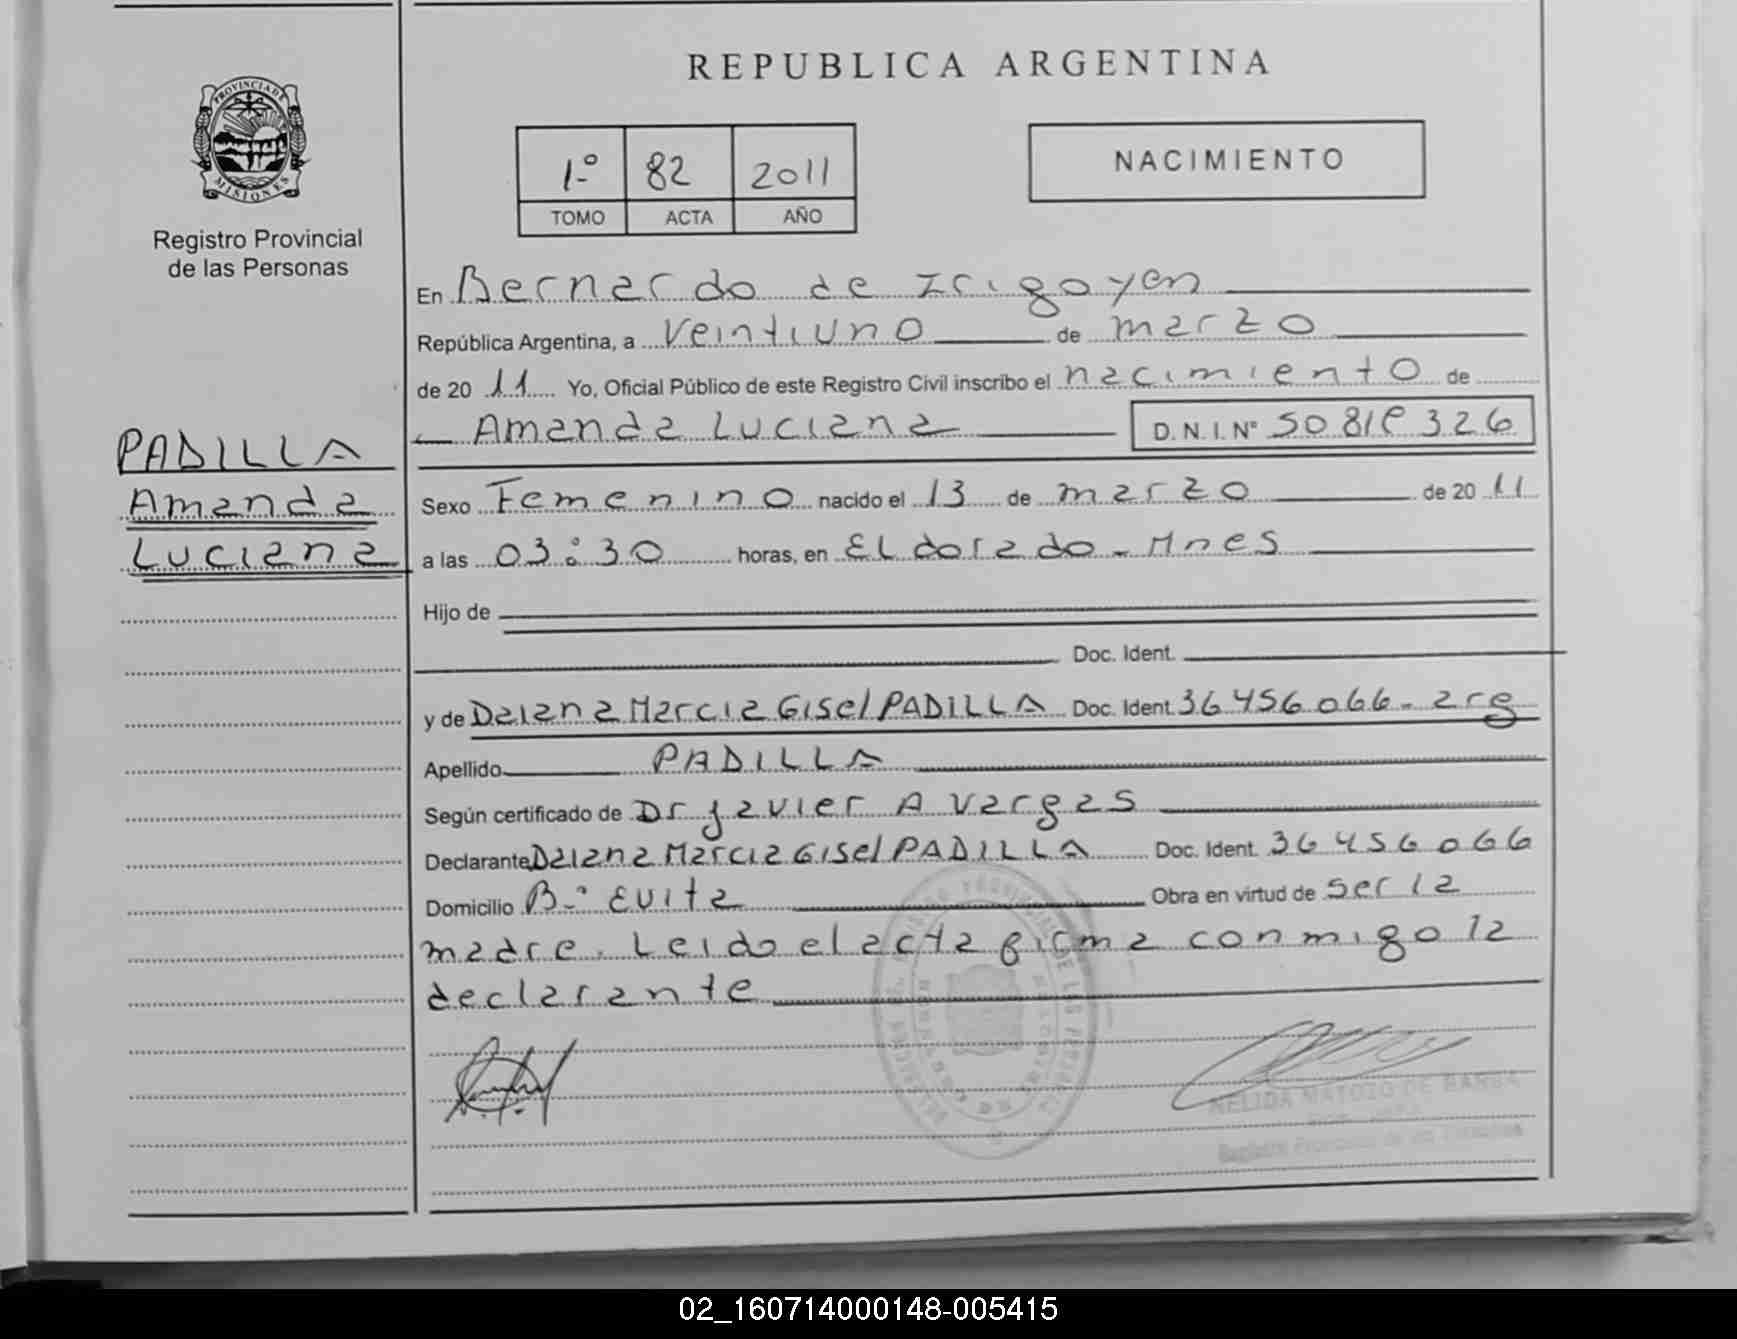 REPUBLICA ARGENTINA
PROVINCIA DE
MISIONES
Registro Provincial
de las Personas
1º 82 2011
TOMO ACTA AÑO
NACIMIENTO
En Bernardo de Irigoyen
República Argentina, a veintiuno de marzo
de 2011 Yo, Oficial Público de este Registro Civil inscribo el nacimiento de
Amanda Luciana D.N.I.Nº 50 810 326
PADILLA
Amanda
Luciana
Sexo Femenino nacido el 13 de marzo de 2011
a las 03:30 horas, en Eldorado - Mnes
Hijo de
Doc. Ident.
y de Daiana Marcia Gisel PADILLA Doc. Ident. 36 456 066 - arg
Apellido PADILLA
Según certificado de Dr Javier A Vargas
Declarante Daiana Marcia Gisel PADILLA Doc. Ident. 36 456 066
Domicilio Bº Evita Obra en virtud de ser la
madre. Leido el acta firma conmigo la
declarante
NELIDA MATOZO DE BARBA
Registro Provincial de las Personas
02_160714000148-005415